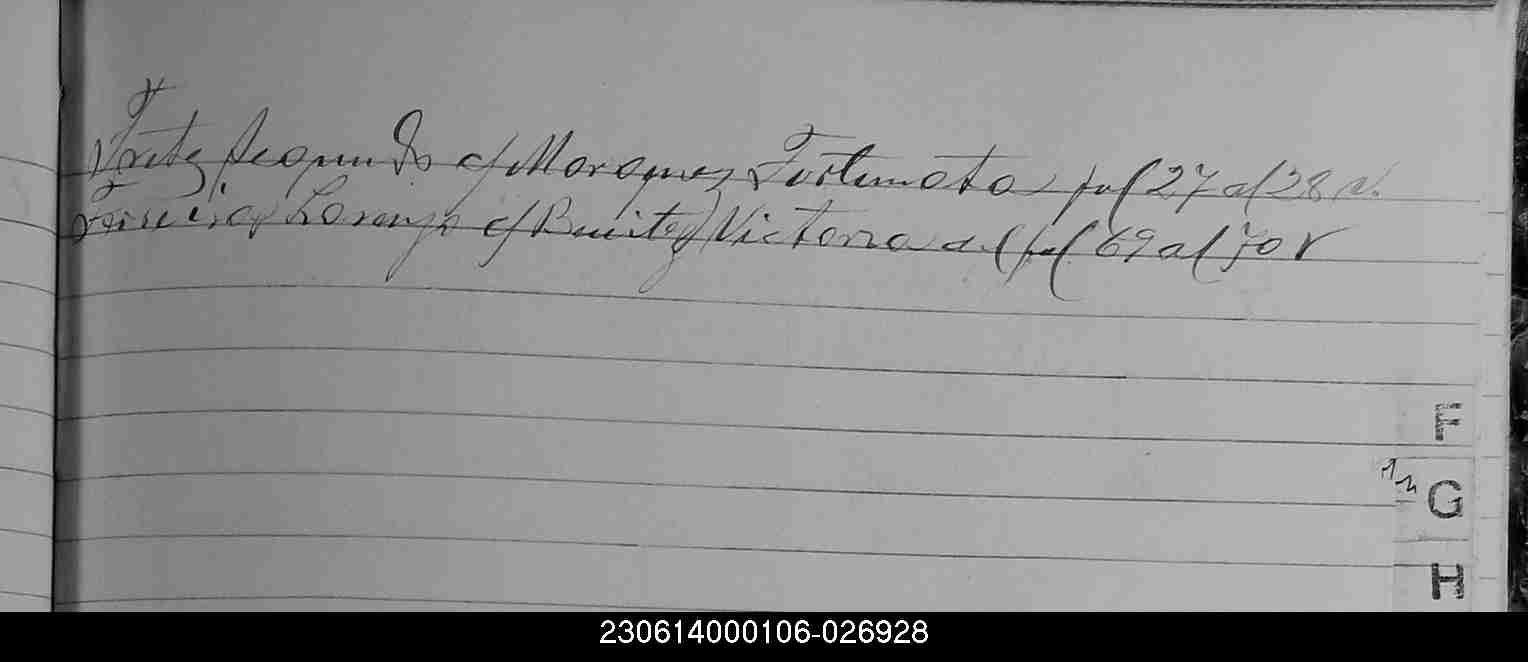 Segundo c/ Marquez Fortunata fol 27 al 28 v.
Ferreira Lorenzo c/ Benitez Victoria del fol 69 al 70 V
F
G
H
230614000106-026928